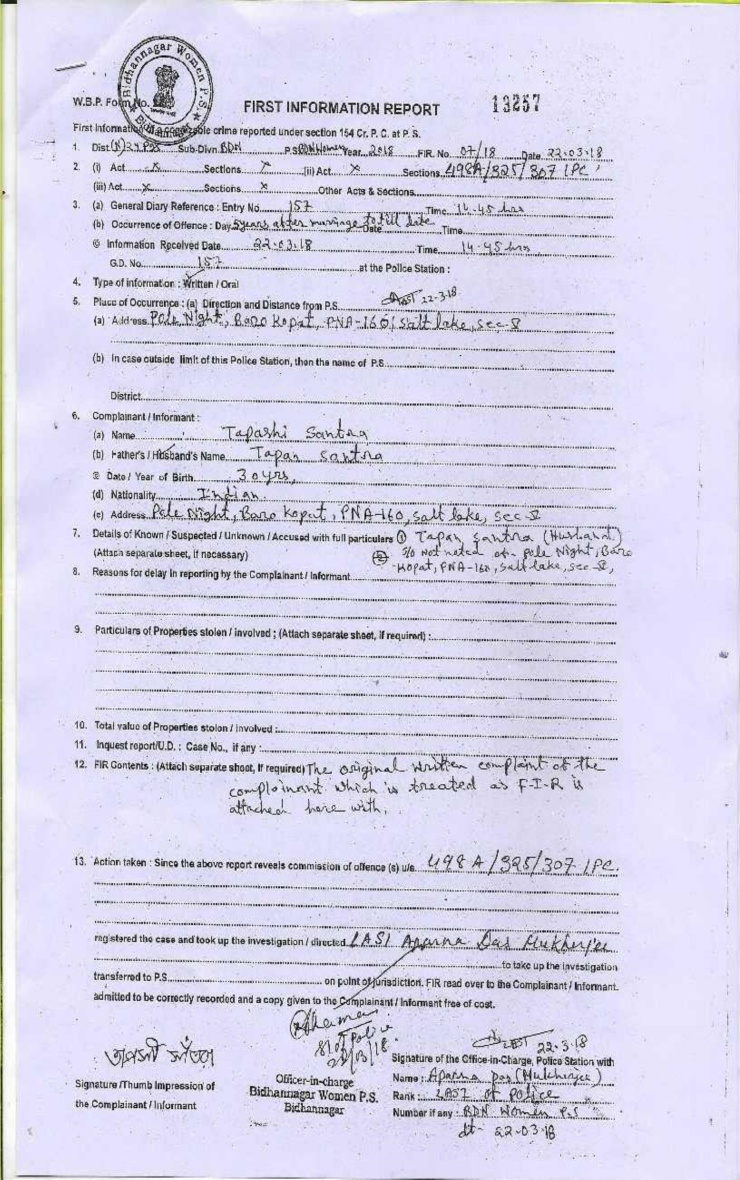 Bidhannagar Women P.S.
Bidhannagar
W.B.P. Form No.
FIRST INFORMATION REPORT
13257
First Information of a cognizable crime reported under section 154 Cr. P. C. at P. S.
1. Dist (N) 24 PGS Sub-Divn. BDN P.S BDN Women Year 2018 FIR. No. 07/18 Date 22.03.18
2. (i) Act X Sections X (ii) Act X Sections 498A/325/307 IPC
(iii) Act X Sections X Other Acts & Sections
3. (a) General Diary Reference : Entry No. 157 Time 14.45 hrs
(b) Occurrence of Offence : Day 5years after marriage to till date Date Time
© Information Received Date 22.03.18 Time 14-45 hrs
G.D. No. 157 at the Police Station :
4. Type of information : Written / Oral
22-3-18
5. Place of Occurrence : (a) Direction and Distance from P.S.
(a) Address Pole Night, Baro Kopat, PNA-160, Salt lake, sec-
(b) In case outside limit of this Police Station, then the name of P.S.
District
6. Complainant / Informant :
(a) Name Tapashi Santra
(b) Father's / Husband's Name Tapan Santra
© Date / Year of Birth 30 yrs,
(d) Nationality Indian.
(e) Address Pole Night, Baro Kopat, PNA-160, salt lake, sec-
7. Details of Known / Suspected / Unknown / Accused with full particulars ① Tapan Santra (Husband)
(Attach separate sheet, if necessary) S/o Not noted of- Pole Night, Baro
Kopat, PNA-160, salt lake, sec-
8. Reasons for delay in reporting by the Complainant / Informant
9. Particulars of Properties stolen / involved ; (Attach separate sheet, if required) :
10. Total value of Properties stolen / involved :
11. Inquest report/U.D. : Case No., if any :
12. FIR Contents : (Attach separate sheet, if required) The original written complaint of the
complainant which is treated as F-I-R is
attached here with.
13. Action taken : Since the above report reveals commission of offence (s) u/s. 498 A/325/307 IPC.
registered the case and took up the investigation / directed LASI Aparna Das Mukherjee
to take up the investigation
transferred to P.S. on point of jurisdiction. FIR read over to the Complainant / Informant.
admitted to be correctly recorded and a copy given to the Complainant / Informant free of cost.
SI of Police
22/03/18.
তাপসী সাঁতরা
Signature /Thumb Impression of
the Complainant / Informant
Officer-in-charge
Bidhannagar Women P.S.
Bidhannagar
22-3-18
Signature of the Office-in-Charge, Police Station with
Name : Aparna Das (Mukherjee)
Rank : LASI of Police
Number if any : BDN Women P.S
dt- 22-03-18